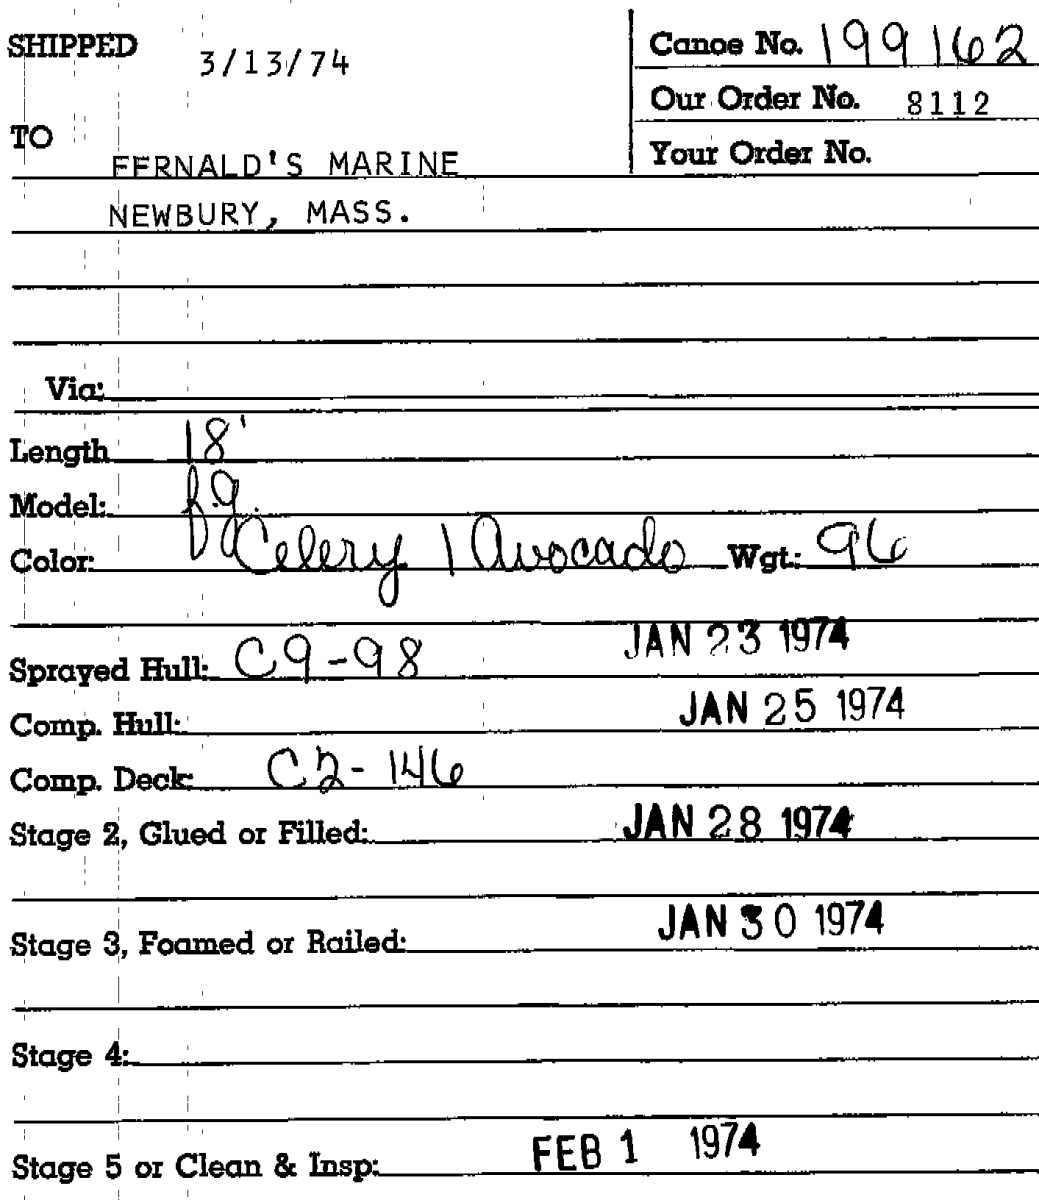 SHIPPED 3/13/74 Canoe No. 199162
Our Order No. 8112
TO
FERNALD'S MARINE Your Order No.
NEWBURY, MASS.
Via:
Length 18'
Model: f.g.
Color: Celery / Avocado Wgt.: 96
Sprayed Hull: C9-98 JAN 23 1974
Comp. Hull: JAN 25 1974
Comp. Deck: C2-146
Stage 2, Glued or Filled: JAN 28 1974
Stage 3, Foamed or Railed: JAN 30 1974
Stage 4:
Stage 5 or Clean & Insp: FEB 1 1974